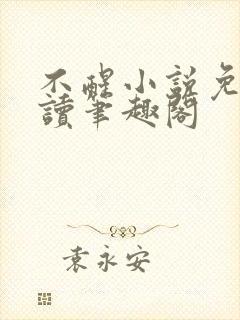 不醒小説免
讀筆趣閣
袁永安